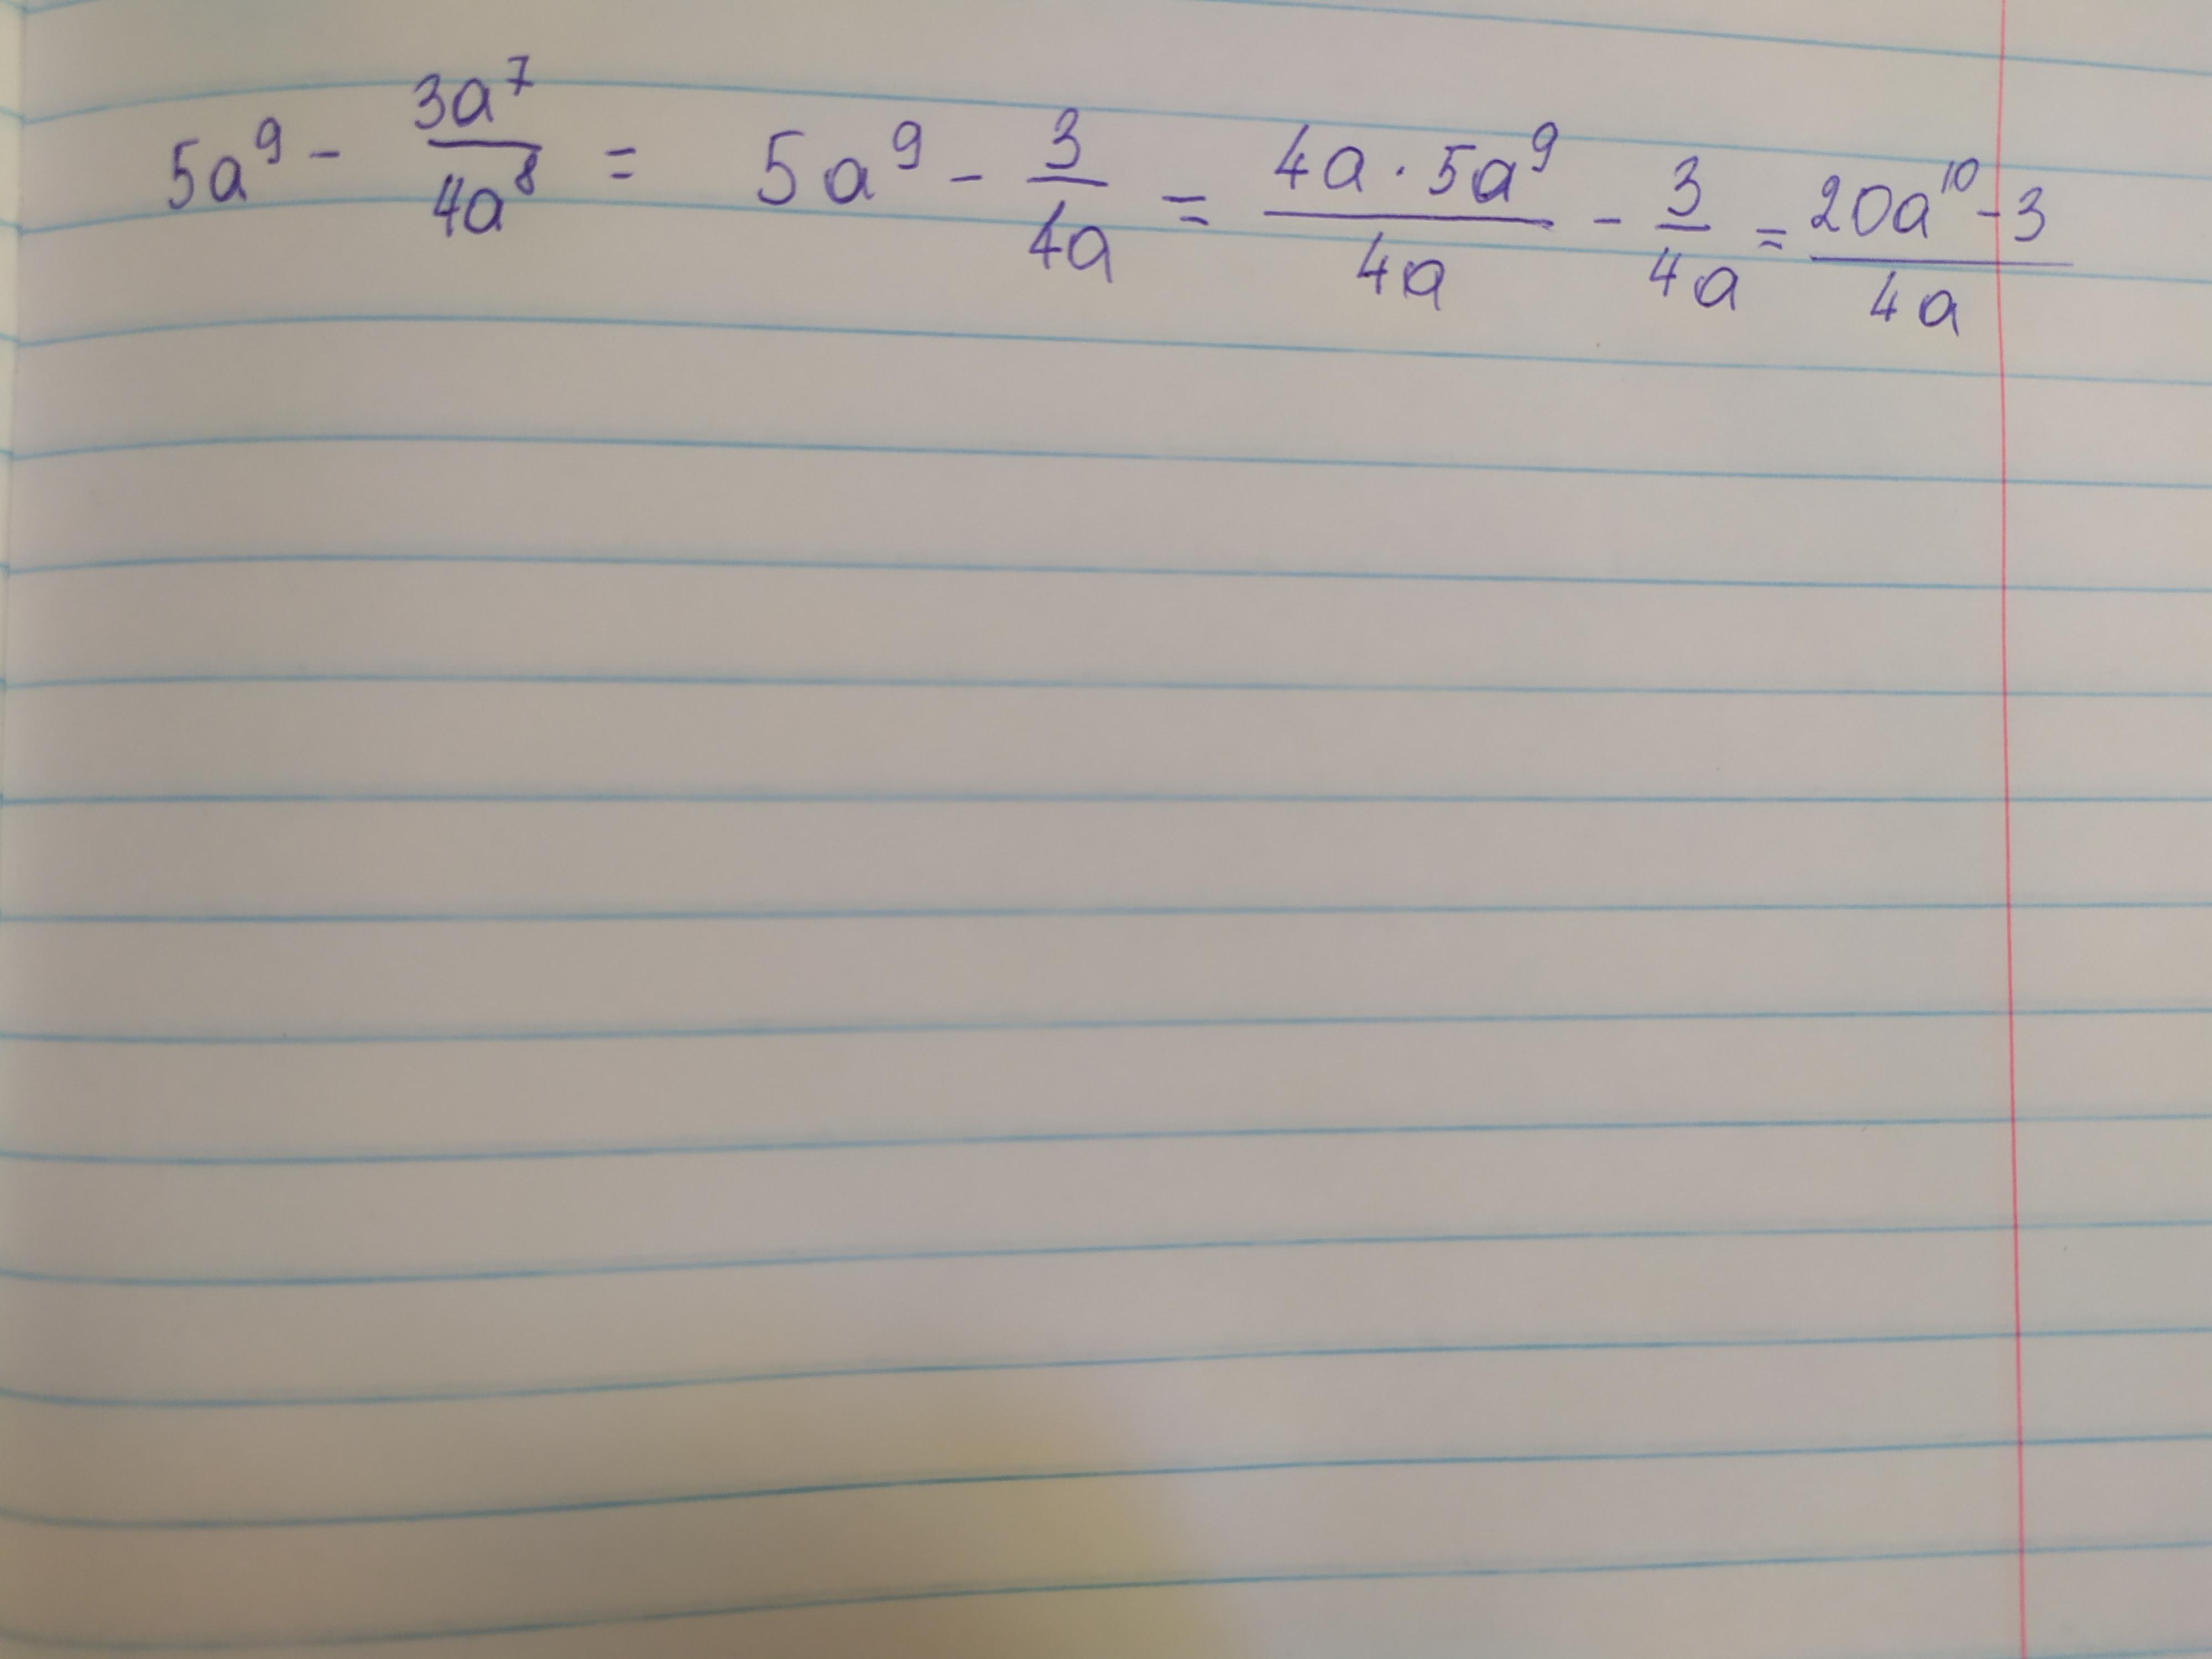 5a⁹ - 3a⁷/4a⁸ = 5a⁹ - 3/4a = 4a · 5a⁹/4a - 3/4a = 20a¹⁰ - 3/4a